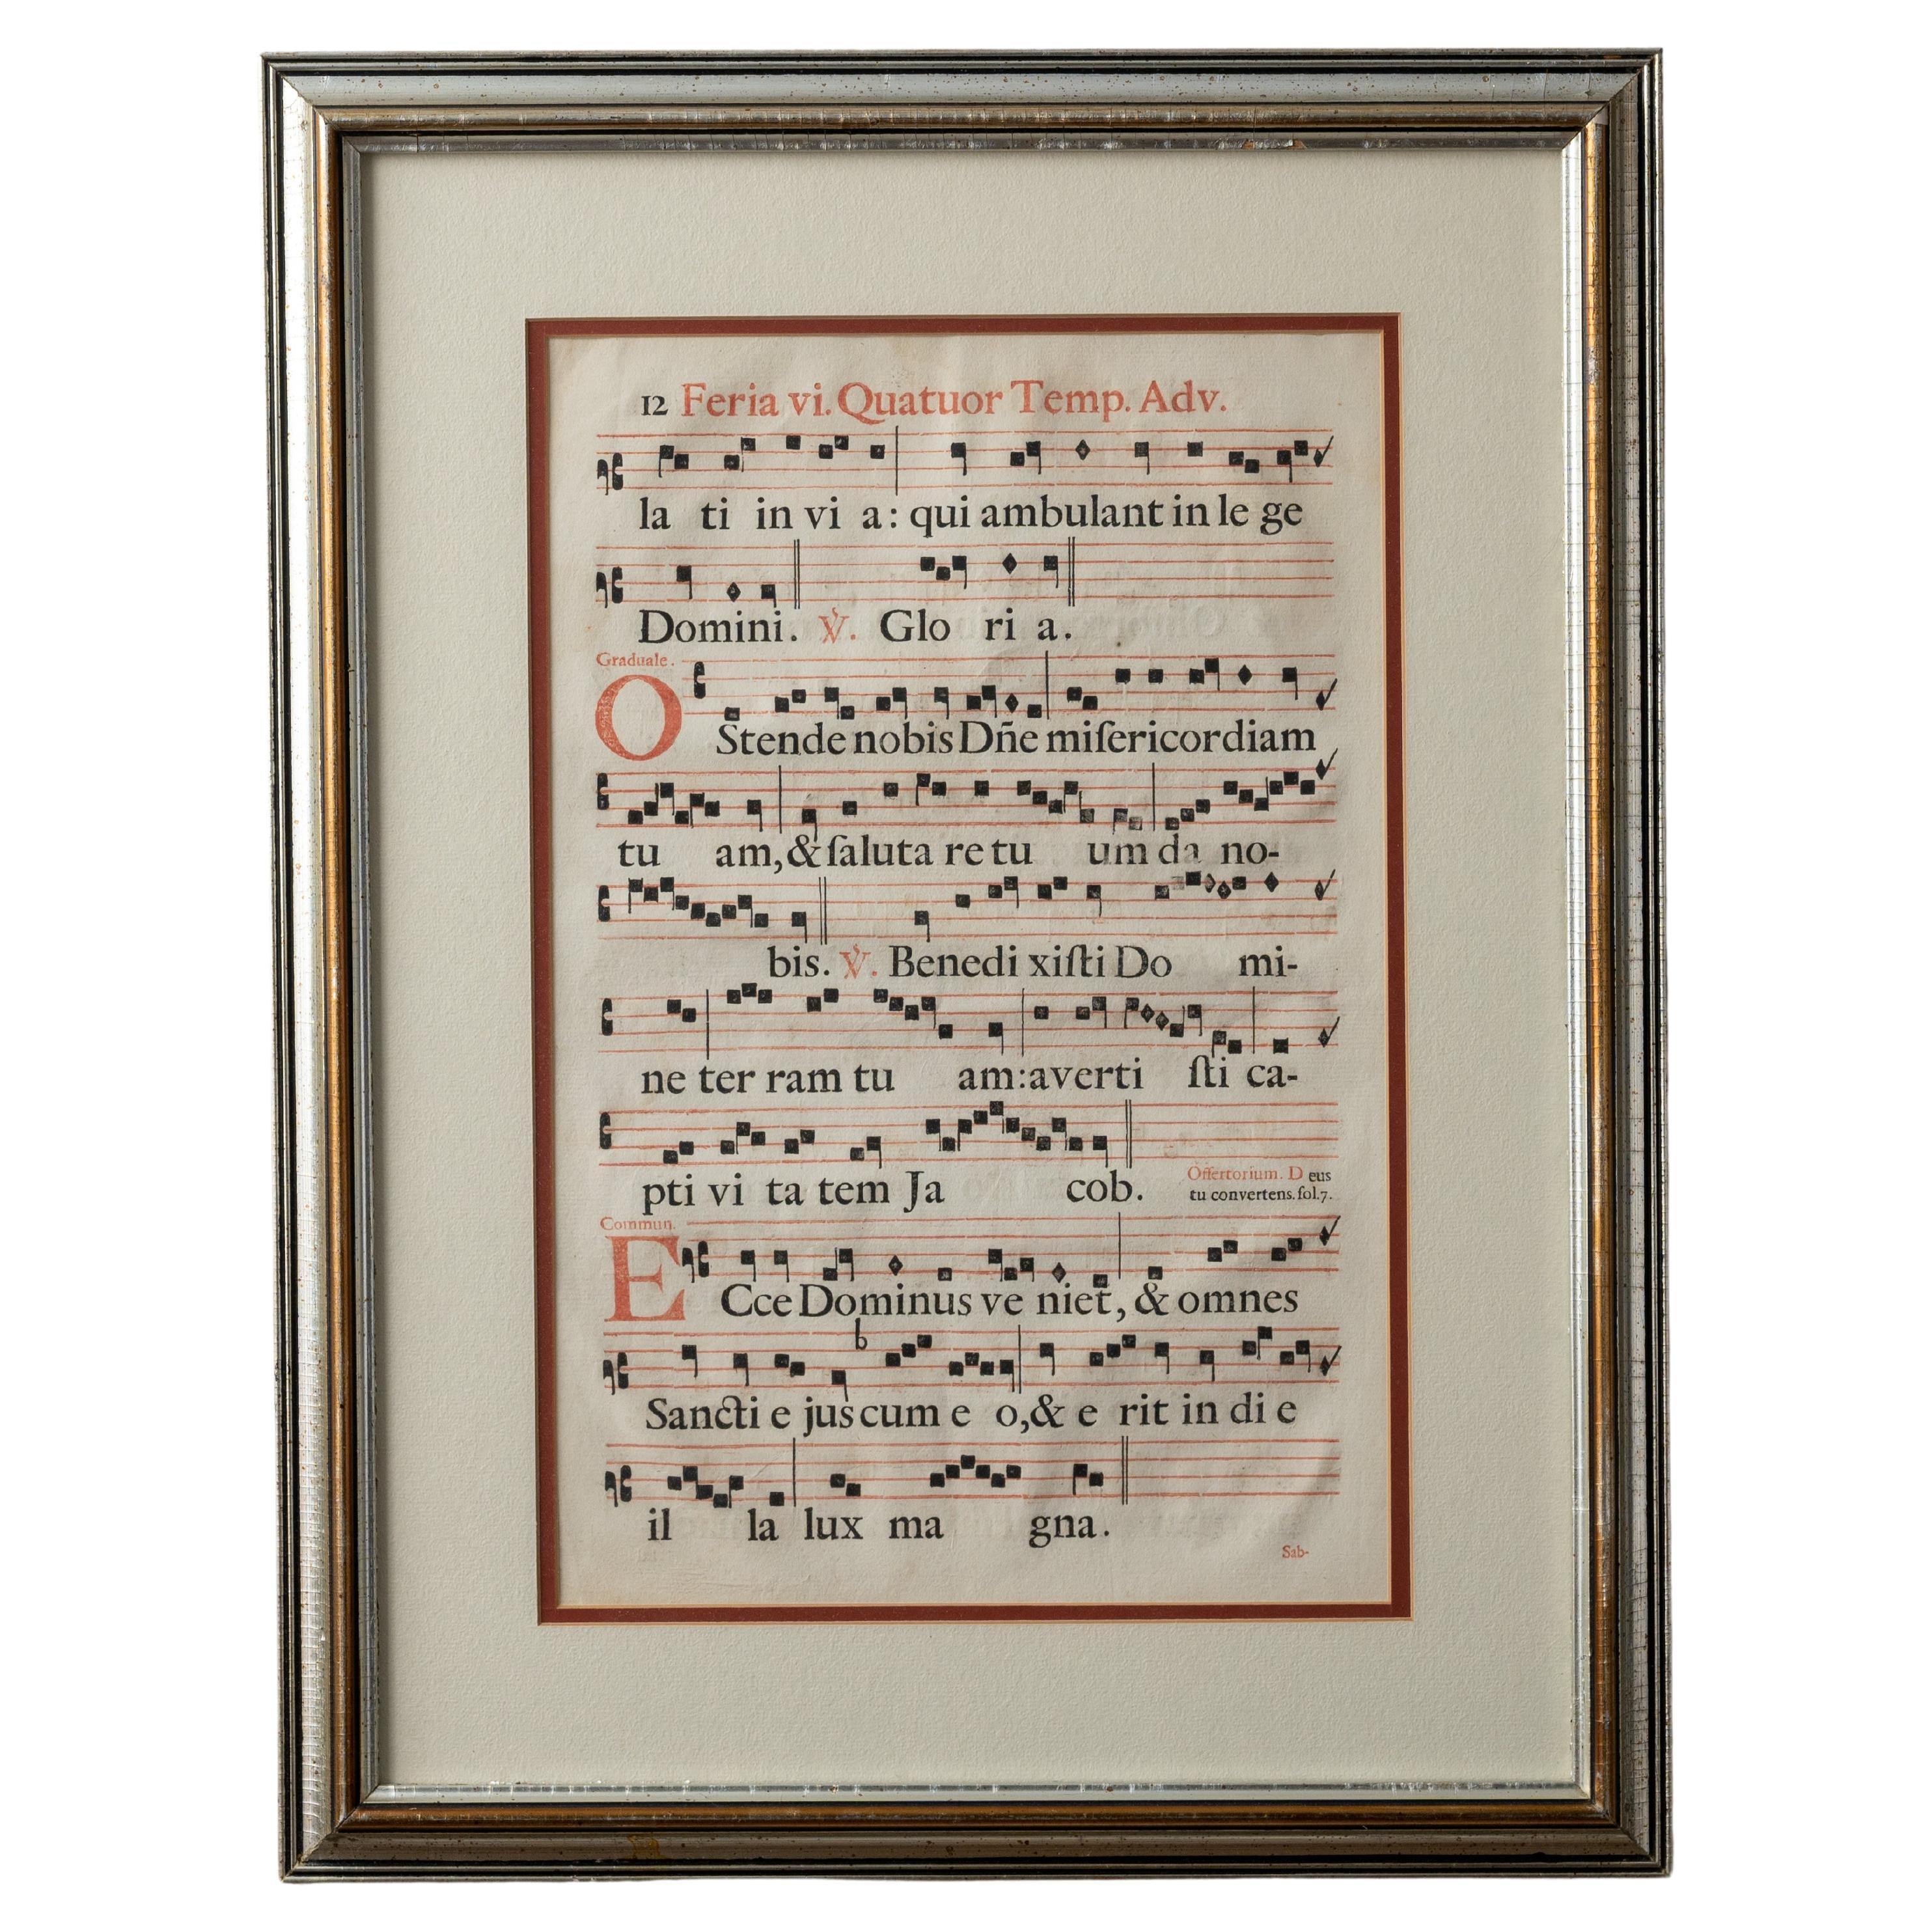 12 Feria vi. Quatuor Temp. Adv.
la ti in vi a: qui ambulant in le ge
Domini. ℣. Glo ri a.
Graduale.
OStende nobis Dñe miſericordiam
tu am, & ſaluta re tu um da no-
bis. ℣. Benedi xiſti Do mi-
ne ter ram tu am: averti ſti ca-
pti vi ta tem Ja cob.
Offertorium. Deus
tu convertens. fol. 7.
Commun.
ECce Dominus ve niet, & omnes
Sancti e jus cum e o, & e rit in di e
il la lux ma gna.
Sab-